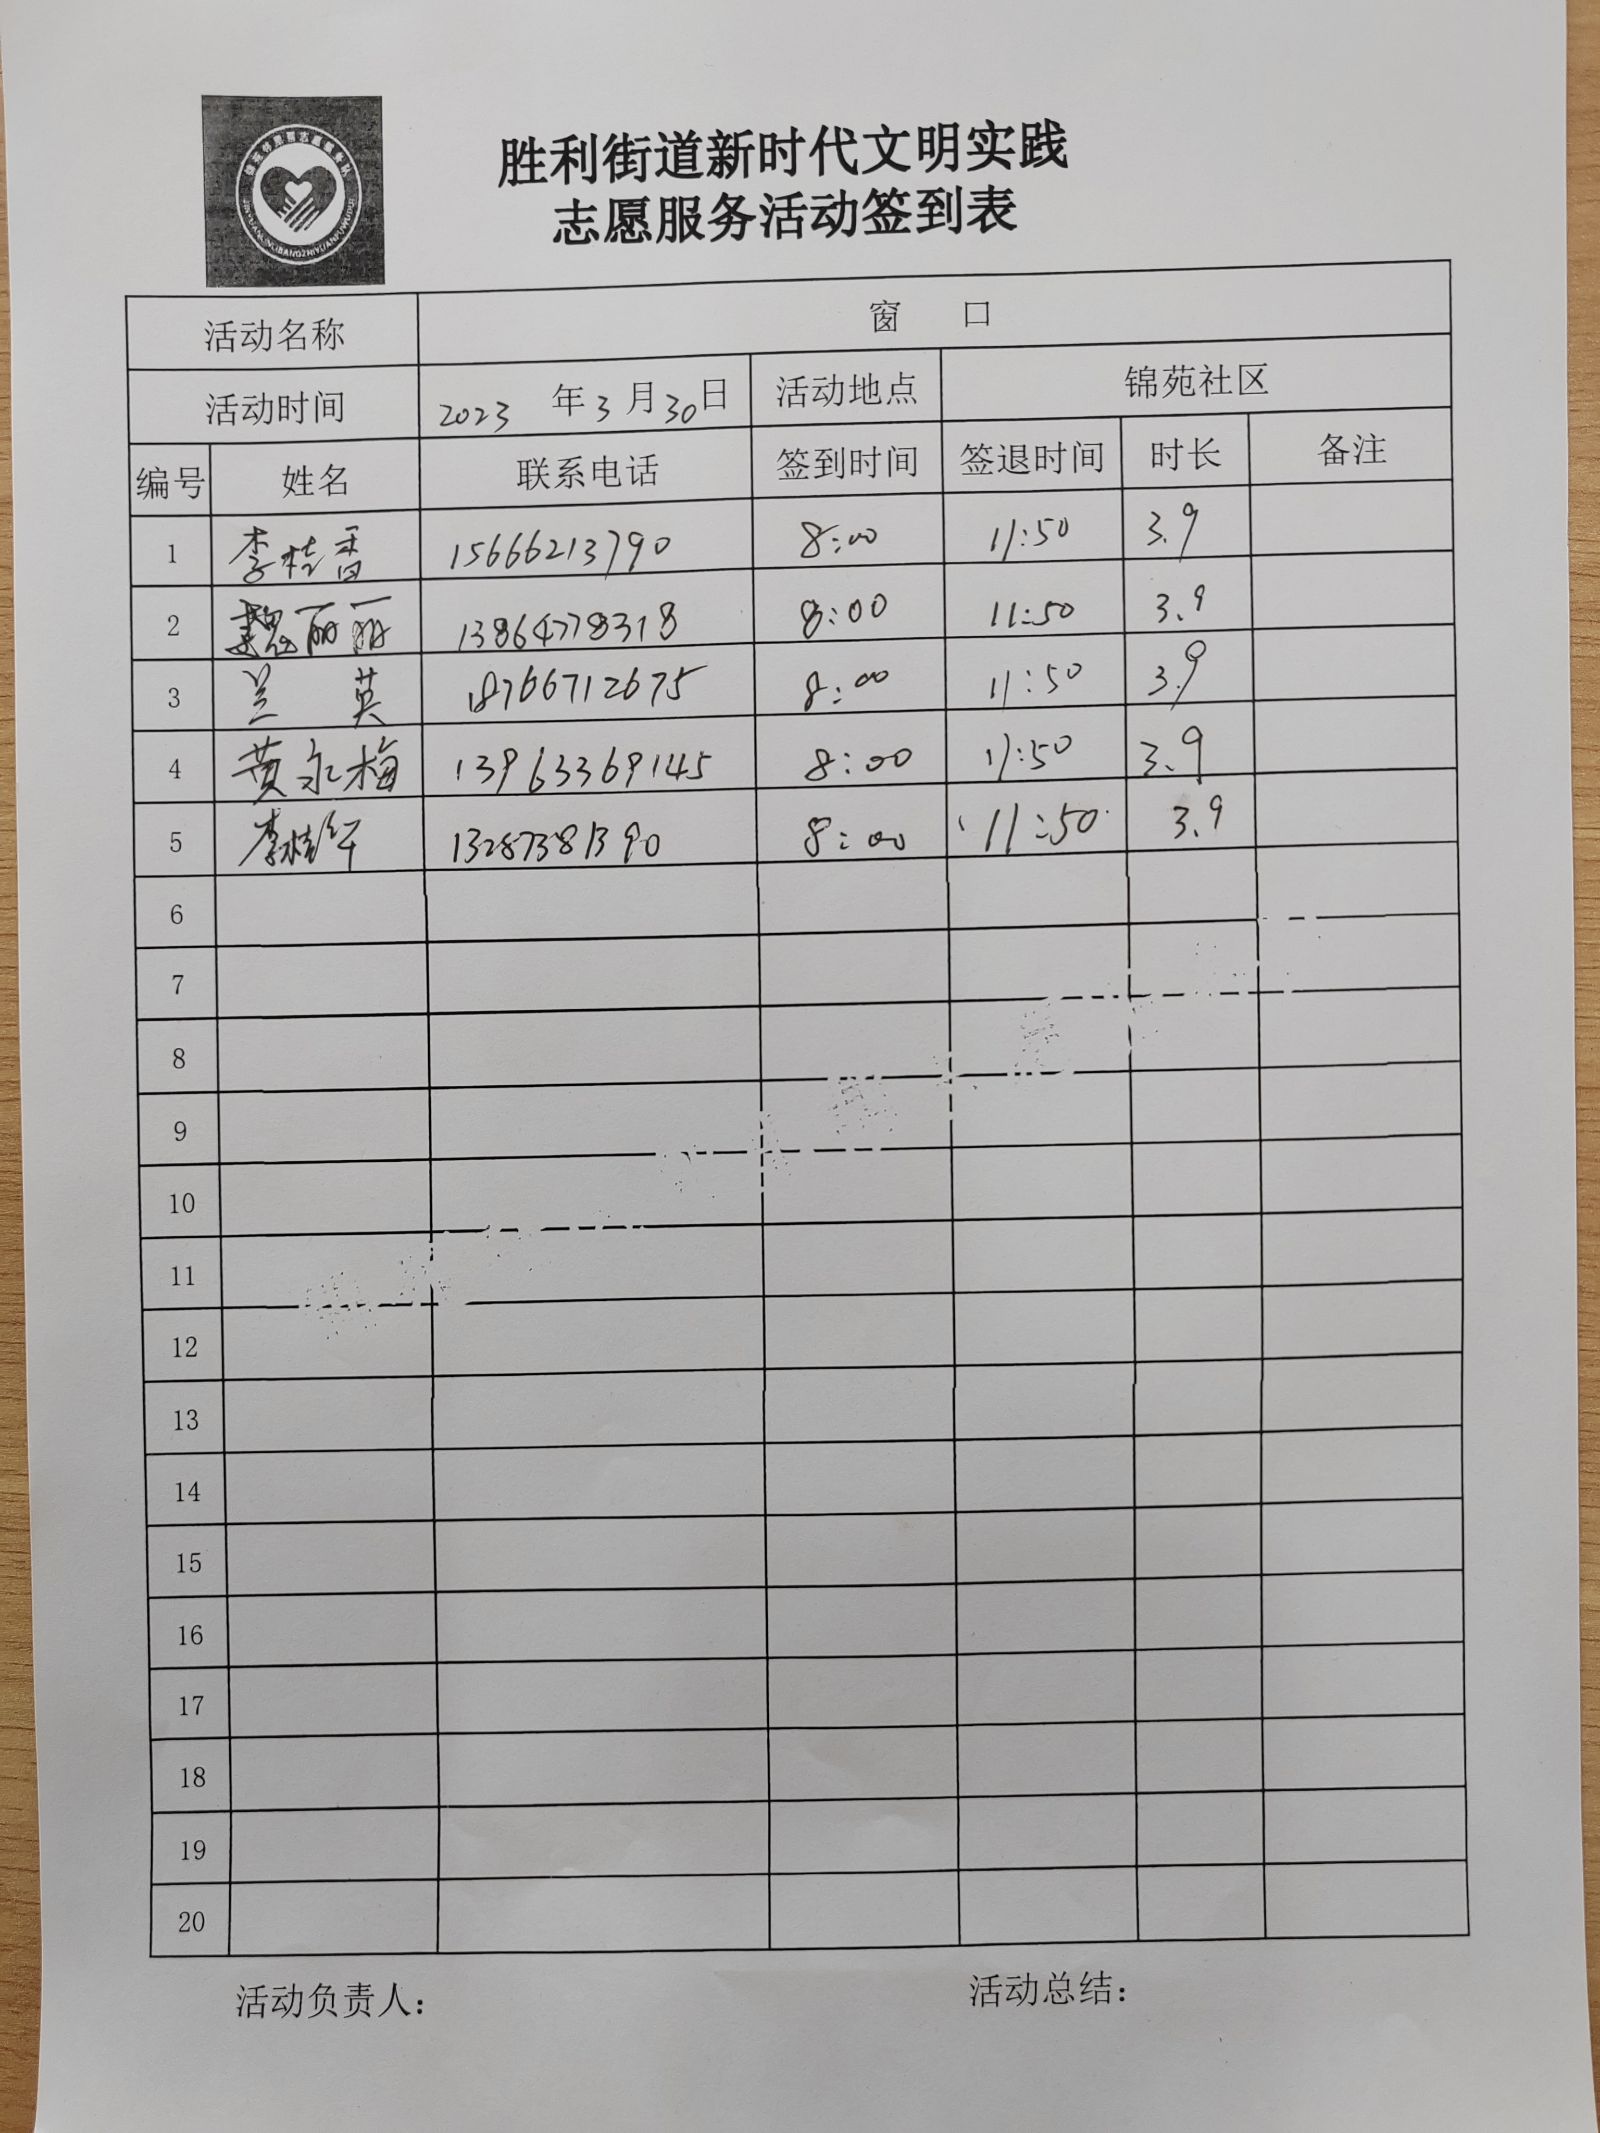 胜利街道新时代文明实践
志愿服务活动签到表
活动名称 窗 口
活动时间 2023 年 3 月 30 日 活动地点 锦苑社区
编号 姓名 联系电话 签到时间 签退时间 时长 备注
1 李桂香 15666213790 8:00 11:50 3.9
2 魏丽丽 13864778318 8:00 11:50 3.9
3 兰 英 18766712675 8:00 11:50 3.9
4 黄永梅 13963369145 8:00 11:50 3.9
5 李桂 13287381390 8:00 11:50 3.9
6
7
8
9
10
11
12
13
14
15
16
17
18
19
20
活动负责人： 活动总结：